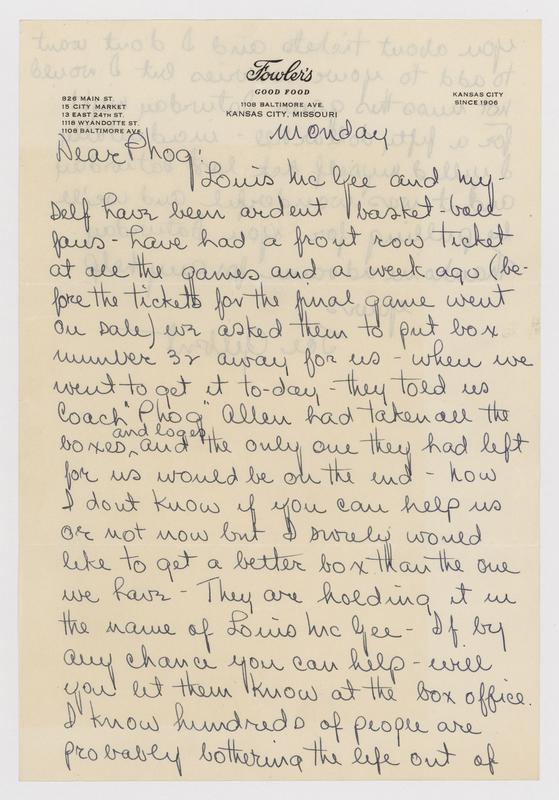 Fowler's
GOOD FOOD
826 MAIN ST.
15 CITY MARKET
13 EAST 24TH ST.
1118 WYANDOTTE ST.
1108 BALTIMORE AVE
1108 BALTIMORE AVE.
KANSAS CITY, MISSOURI
KANSAS CITY
SINCE 1906
Monday
Dear Phog:
Louis McGee and my-
self have been ardent basket-ball
fans - have had a front row ticket
at all the games and a week ago (be-
fore the tickets for the final game went
on sale) we asked them to put box
number 32 away for us - when we
went to get it to-day - they told us
Coach "Phog" Allen had taken all the
boxes, and loges and the only one they had left
for us would be on the end - now
I dont know if you can help us
or not now but I surely would
like to get a better box than the one
we have - They are holding it in
the name of Louis McGee - If by
any chance you can help - will
you let them know at the box office.
I know hundreds of people are
probably bothering the life out of